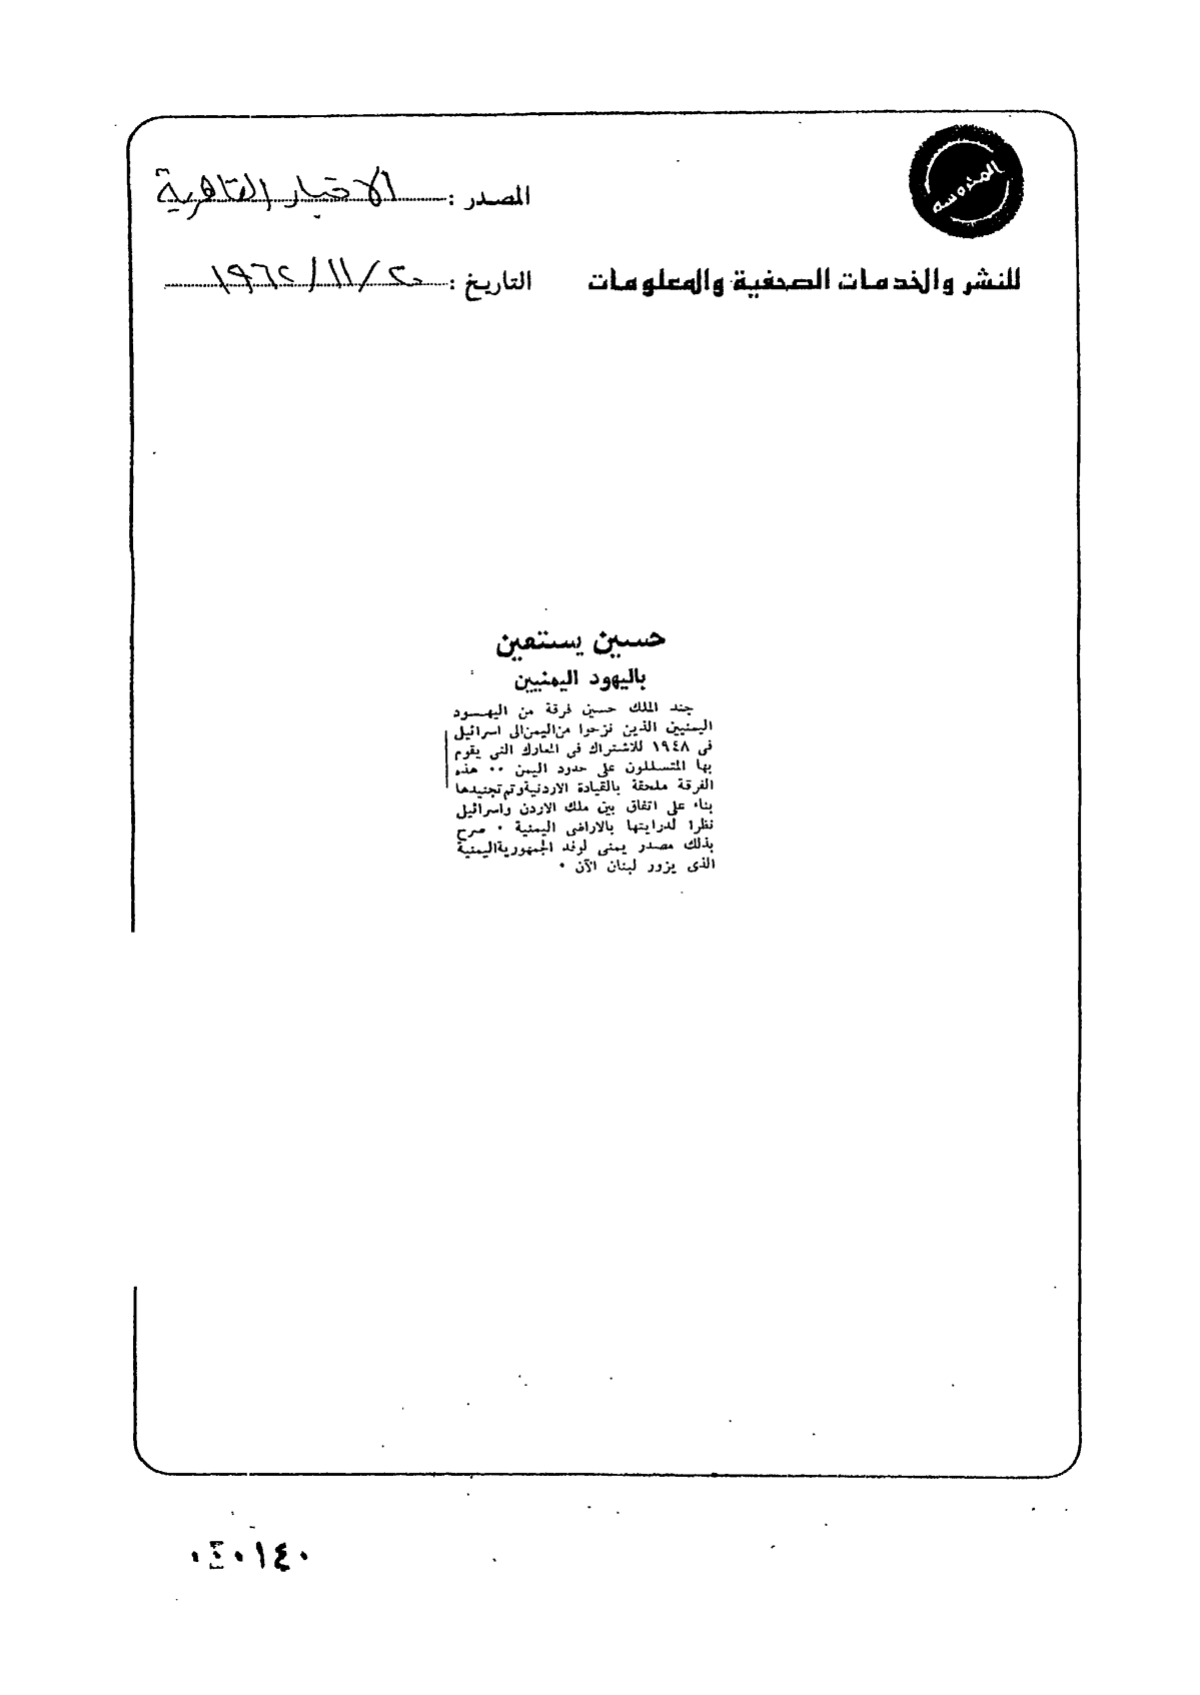 المحروسة
المصدر : الاخبار القاهرية
للنشر والخدمات الصحفية والمعلومات
التاريخ : ٢٠ / ١١ / ١٩٦٢
حسين يستعين
باليهود اليمنيين
جند الملك حسين فرقة من اليهود
اليمنيين الذين نزحوا من اليمن الى اسرائيل
فى ١٩٤٨ للاشتراك فى المعارك التى يقوم
بها المتسللون على حدود اليمن ٠٠ هذه
الفرقة ملحقة بالقيادة الاردنية وتم تجنيدها
بناء على اتفاق بين ملك الاردن واسرائيل
نظرا لدرايتها بالاراضى اليمنية ٠ صرح
بذلك مصدر يمنى لوفد الجمهورية اليمنية
الذى يزور لبنان الآن ٠